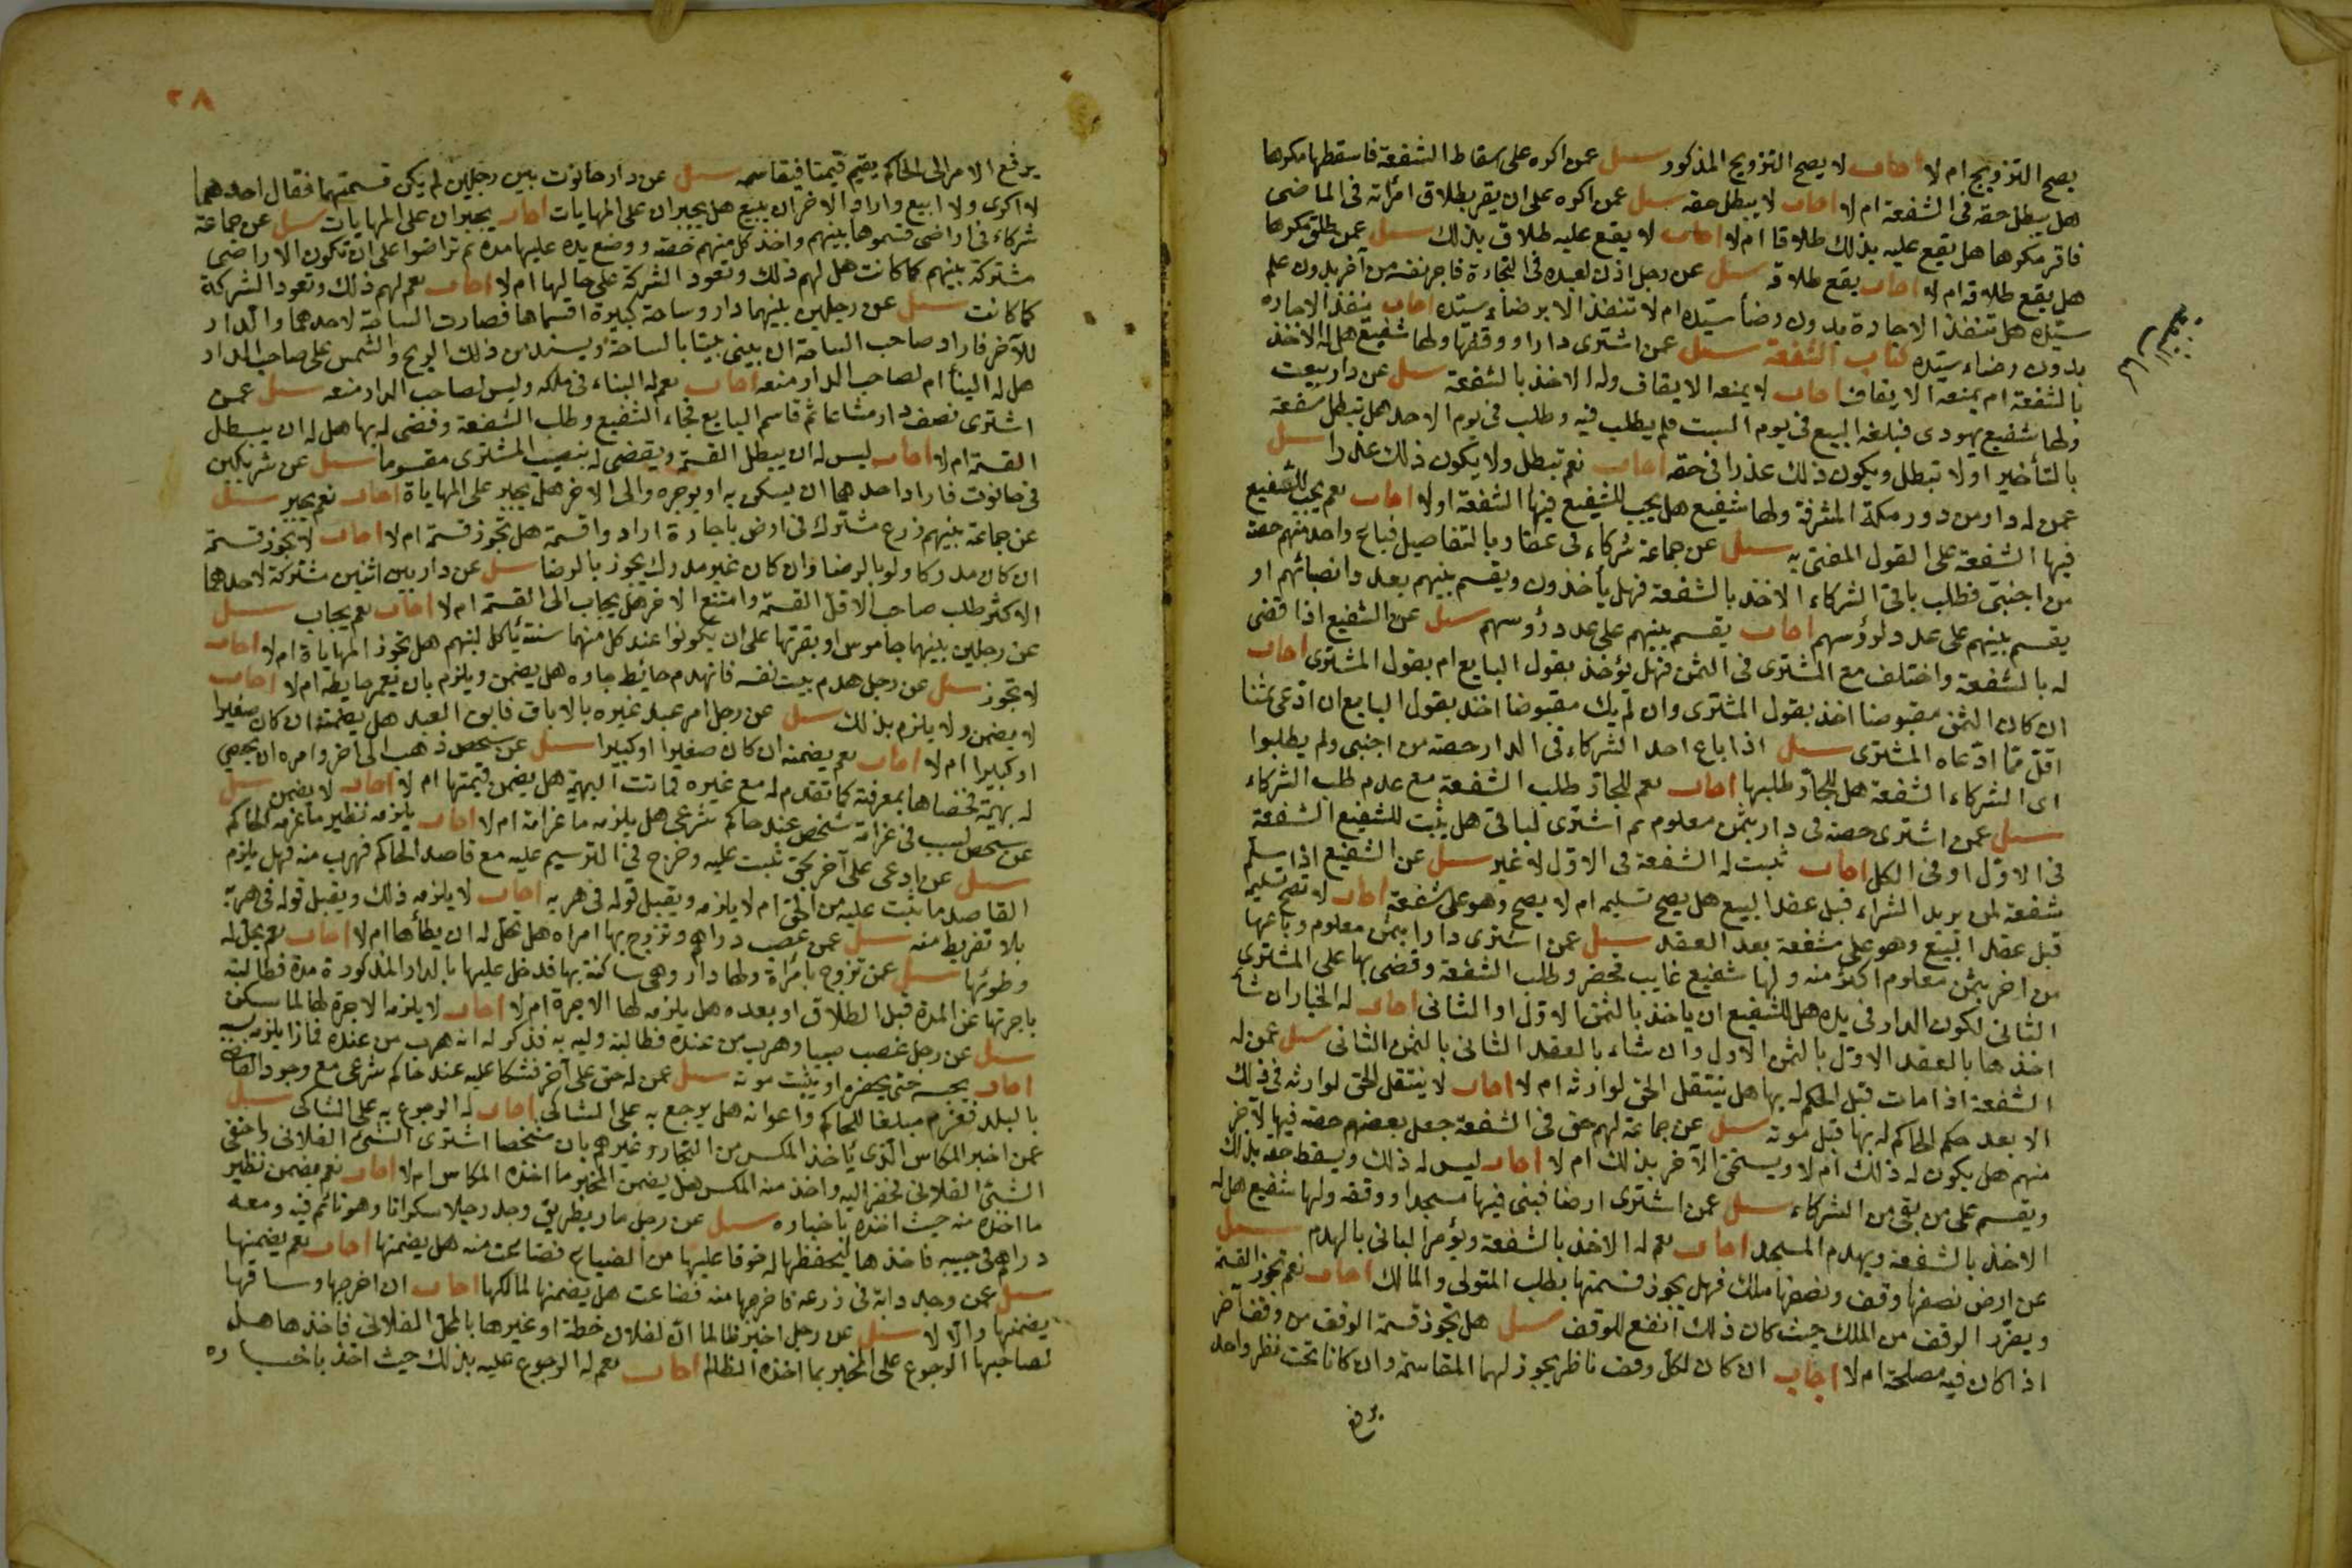 يصح التزويج ام لا اجاب لا يصح التزويج المذكور سيل عمن اكره على اسقاط الشفعة فاسقطها مكرها
هل يبطل حقه فى الشفعة ام لا اجاب لا يبطل حقه سيل عمن اكره على ان يقر بطلاق امرأته فى الماضى
فاقر مكرها هل يقع عليه بذلك طلاقا ام لا اجاب لا يقع عليه طلاق بذلك سيل عمن طلق مكرها
هل يقع طلاقه ام لا اجاب يقع طلاقه سيل عن رجل اذن لعبده فى التجارة فاجر نفسه من آخر بدون علم
سيّده هل تنفذ الاجارة بدون رضاء سيّده ام لا تنفذ الا برضاء سيّده اجاب ينفذ الاجاره
بدون رضاء سيّده كتاب الشفعة سيل عمن اشترى دارا ووقفها ولها شفيع هل له الاخذ
بالشفعة ام يمنعه الايقاف اجاب لا يمنعه الايقاف وله الاخذ بالشفعة سيل عن دار بيعت
ولها شفيع يهودى فبلغه البيع فى يوم السبت فلم يطلب فيه وطلب فى يوم الاحد هل تبطل شفعة
بالتأخير او لا تبطل ويكون ذلك عذرا فى حقه اجاب نعم تبطل ولا يكون ذلك عذرا سيل
عمن له دار من دور مكة المشرفة ولها شفيع هل يجب للشفيع فيها الشفعة او لا اجاب نعم يجب للشفيع
فيها الشفعة على القول المفتى به سيل عن جماعة شركاء فى عقار بالتفاصيل فباع واحد منهم حصة
من اجنبى فطلب باقى الشركاء الاخذ بالشفعة فهل يأخذون ويقسم بينهم بعدد انصبائهم او
يقسم بينهم على عدد لرؤسهم اجاب يقسم بينهم على عدد رؤوسهم سيل عن الشفيع اذا قضى
له بالشفعة واختلف مع المشترى فى الثمن فهل يؤخذ بقول البايع ام بقول المشترى اجاب
ان كان الثمن مقبوضا اخذ بقول المشترى وان لم يك مقبوضا اخذ بقول البايع ان ادّعى ثمنا
اقل ممّا ادّعاه المشترى سيل اذا باع احد الشركاء فى الدار حصة من اجنبى ولم يطلبوا
اى الشركاء الشفعة هل للجار طلبها اجاب نعم للجار طلب الشفعة مع عدم طلب الشركاء
سيل عمن اشترى حصة فى دار بثمن معلوم ثم اشترى الباقى هل يثبت للشفيع الشفعة
فى الاوّل او فى الكل اجاب ثبت له الشفعة فى الاوّل لا غير سيل عن الشفيع اذا سلّم
شفعة لمن يريد الشراء قبل عقد البيع هل يصح تسليمه ام لا يصح وهو على شفعة اجاب لا تصح تسليمه
قبل عقد البيع وهو على شفعة بعد العقد سيل عمن اشترى دارا بثمن معلوم وباعها
من اخر بثمن معلوم اكثر منه ولها شفيع غايب فحضر وطلب الشفعة وقضى بها على المشترى
الثانى لكون الدار فى يده هل للشفيع ان ياخذ بالثمن الاوّل او الثانى اجاب له الخيار ان شأ
اخذها بالعقد الاوّل بالثمن الاول وان شاء بالعقد الثانى بالثمن الثانى سيل عمن له
الشفعة اذا مات قبل الحكم له بها هل ينتقل الحق لوارثه ام لا اجاب لا ينتقل الحق لوارثه فى ذلك
الا بعد حكم الحاكم له بها قبل موته سيل عن جماعة لهم حق فى الشفعة جعل بعضهم حصة فيها لآخر
منهم هل يكون له ذلك ام لا ويستحق الآخر بذلك ام لا اجاب ليس له ذلك ويسقط حقه بذلك
ويقسم على من بقى من الشركاء سيل عمن اشترى ارضا فبنى فيها مسجدا ووقفه ولها شفيع هل له
الاخذ بالشفعة ويهدم المسجد اجاب نعم له الاخذ بالشفعة ويؤمر البانى بالهدم سيل
عن ارض نصفها وقف ونصفها ملك فهل يجوز قسمتها بطلب المتولى والمالك اجاب نعم تجوز القسمة
ويفرّد الوقف من الملك حيث كان ذلك انفع للوقف سيل هل تجوز قسمة الوقف من وقف آخر
اذا كان فيه مصلحة ام لا اجاب ان كان لكلّ وقف ناظر يجوز لهما المقاسمة وان كانا تحت نظر واحد
يرفع
٢٨
يرفع الامر الى الحاكم يقيم قيّما فيقاسمه سيل عن دار حانوت بين رجلين لم يكن قسمتهما فقال احدهما
لا اكرى ولا ابيع واراد الاخر ان يبيع هل يجبران على المهايات اجاب يجبران على المهايات سيل عن جماعة
شركاء فى اراضى قسموها بينهم واخذ كل منهم حصته ووضع يده عليها مدة ثم تراضوا على ان تكون الاراضى
مشتركة بينهم كما كانت هل لهم ذلك وتعود الشركة على حالها ام لا اجاب نعم لهم ذلك وتعود الشركة
كما كانت سيل عن رجلين بينهما دار وساحة كبيرة اقتسماها فصارت الساحة لاحدهما والدار
للآخر فاراد صاحب الساحة ان يبنى بيتا بالساحة ويسد من ذلك الريح والشمس على صاحب الدار
هل له البنأ ام لصاحب الدار منعه اجاب نعم له البناء فى ملكه وليس لصاحب الدار منعه سيل عمن
اشترى نصف دار مشاعا ثم قاسم البايع فجاء الشفيع وطلب الشفعة وقضى له بها هل له ان يبطل
القسمة ام لا اجاب ليس له ان يبطل القسمة ويقضى له بنصيب المشترى مقسوما سيل عن شريكين
فى حانوت فاراد احدهما ان يسكن به او يوجره والى الاخر هل يجبر على المهاياة اجاب نعم يجبر سيل
عن جماعة بينهم زرع مشترك فى ارض باجارة ارادوا قسمة هل تجوز قسمة ام لا اجاب لا يجوز قسمة
ان كان مدركا ولو بالرضا وان كان غير مدرك يجوز بالرضا سيل عن دار بين اثنين مشتركة لاحدهما
الاكثر طلب صاحب الاقل القسمة وامتنع الاخر هل يجاب الى القسمة ام لا اجاب نعم يجاب سيل
عن رجلين بينهما جاموس او بقرتها على ان يكونوا عند كل منهما سنة يأكل لبنهم هل تجوز المهاياة ام لا اجاب
لا تجوز سيل عن رجل هدم بيت نفسه فانهدم حائط جاره هل يضمن ويلزم بان يعمر حايطه ام لا اجاب
لا يضمن ولا يلزم بذلك سيل عن رجل امر عبد غيره بالاباق فابق العبد هل يضمنه ان كان صغيرا
او كبيرا ام لا اجاب نعم يضمنه ان كان صغيرا او كبيرا سيل عن شخص ذهب الى اخر وامره ان يخصى
له بهيمة فخصاها بمعرفته كما تقدم له مع غيره فماتت البهيمة هل يضمن قيمتها ام لا اجاب لا يضمن سيل
عن شخص تسبب فى غرامة شخص عند حاكم شرعى هل يلزمه ما غرامة ام لا اجاب يلزمه نظير ما غرمه الحاكم
سيل عمن ادعى على آخر بحق ثبت عليه وخرج فى الترسيم عليه مع قاصد الحاكم فهرب منه فهل يلزم
القاصد ما ثبت عليه من الحق ام لا يلزمه ويقبل قوله فى هربه اجاب لا يلزمه ذلك ويقبل قوله فى هربه
بلا تفريط منه سيل عمن غصب دراهم وتزوج بها امراه هل تحل له ان يطأها ام لا اجاب نعم يحل له
وطوئها سيل عمن تزوج بامرأة ولها دار وهى ساكنة بها فدخل عليها بالدار المذكورة مدة فطالبته
باجرتها عن المدة قبل الطلاق او بعده هل يلزمه لها الاجرة ام لا اجاب لا يلزمه الاجرة لها لما سكن
سيل عن رجل غصب صبيا وهرب من عنده فطالبه وليه به فذكر له انه هرب من عنده فماذا يلزمه بسببه
اجاب يحبس حتى يحضره او يثبت موته سيل عمن له حق على آخر فشكا عليه عند حاكم شرعى مع وجود القاضى
بالبلد فغرم مبلغا للحاكم واعوانه هل يرجع به على الشاكى اجاب له الرجوع به على الشاكى سيل
عمن اخبر المكاس الذى يأخذ المكس من التجار وغيرهم بان شخصا اشترى الشئ الفلانى واخفى
الشئ الفلانى فحضر اليه واخذ منه المكس هل يضمن المخبر ما اخذه المكاس ام لا اجاب نعم يضمن نظير
ما اخذه منه حيث اخذه باخباره سيل عن رجل مار بطريق وجد رجلا سكرانا وهو نائم فيه ومعه
دراهم فى جيبه فاخذها ليحفظها له خوفا عليها من الضياع فضاعت منه هل يضمنها اجاب نعم يضمنها
سيل عمن وجد دابة فى زرعه فاخرجها منه فضاعت هل يضمنها لمالكها اجاب ان اخرجها وساقها
يضمنها والا لا سيل عن رجل اخبر ظالما ان لفلان حنطة او غيرها بالمحل الفلانى فاخذها هل
لصاحبها الرجوع على المخبر بما اخذه الظالم اجاب نعم له الرجوع عليه بذلك حيث اخذ باخباره